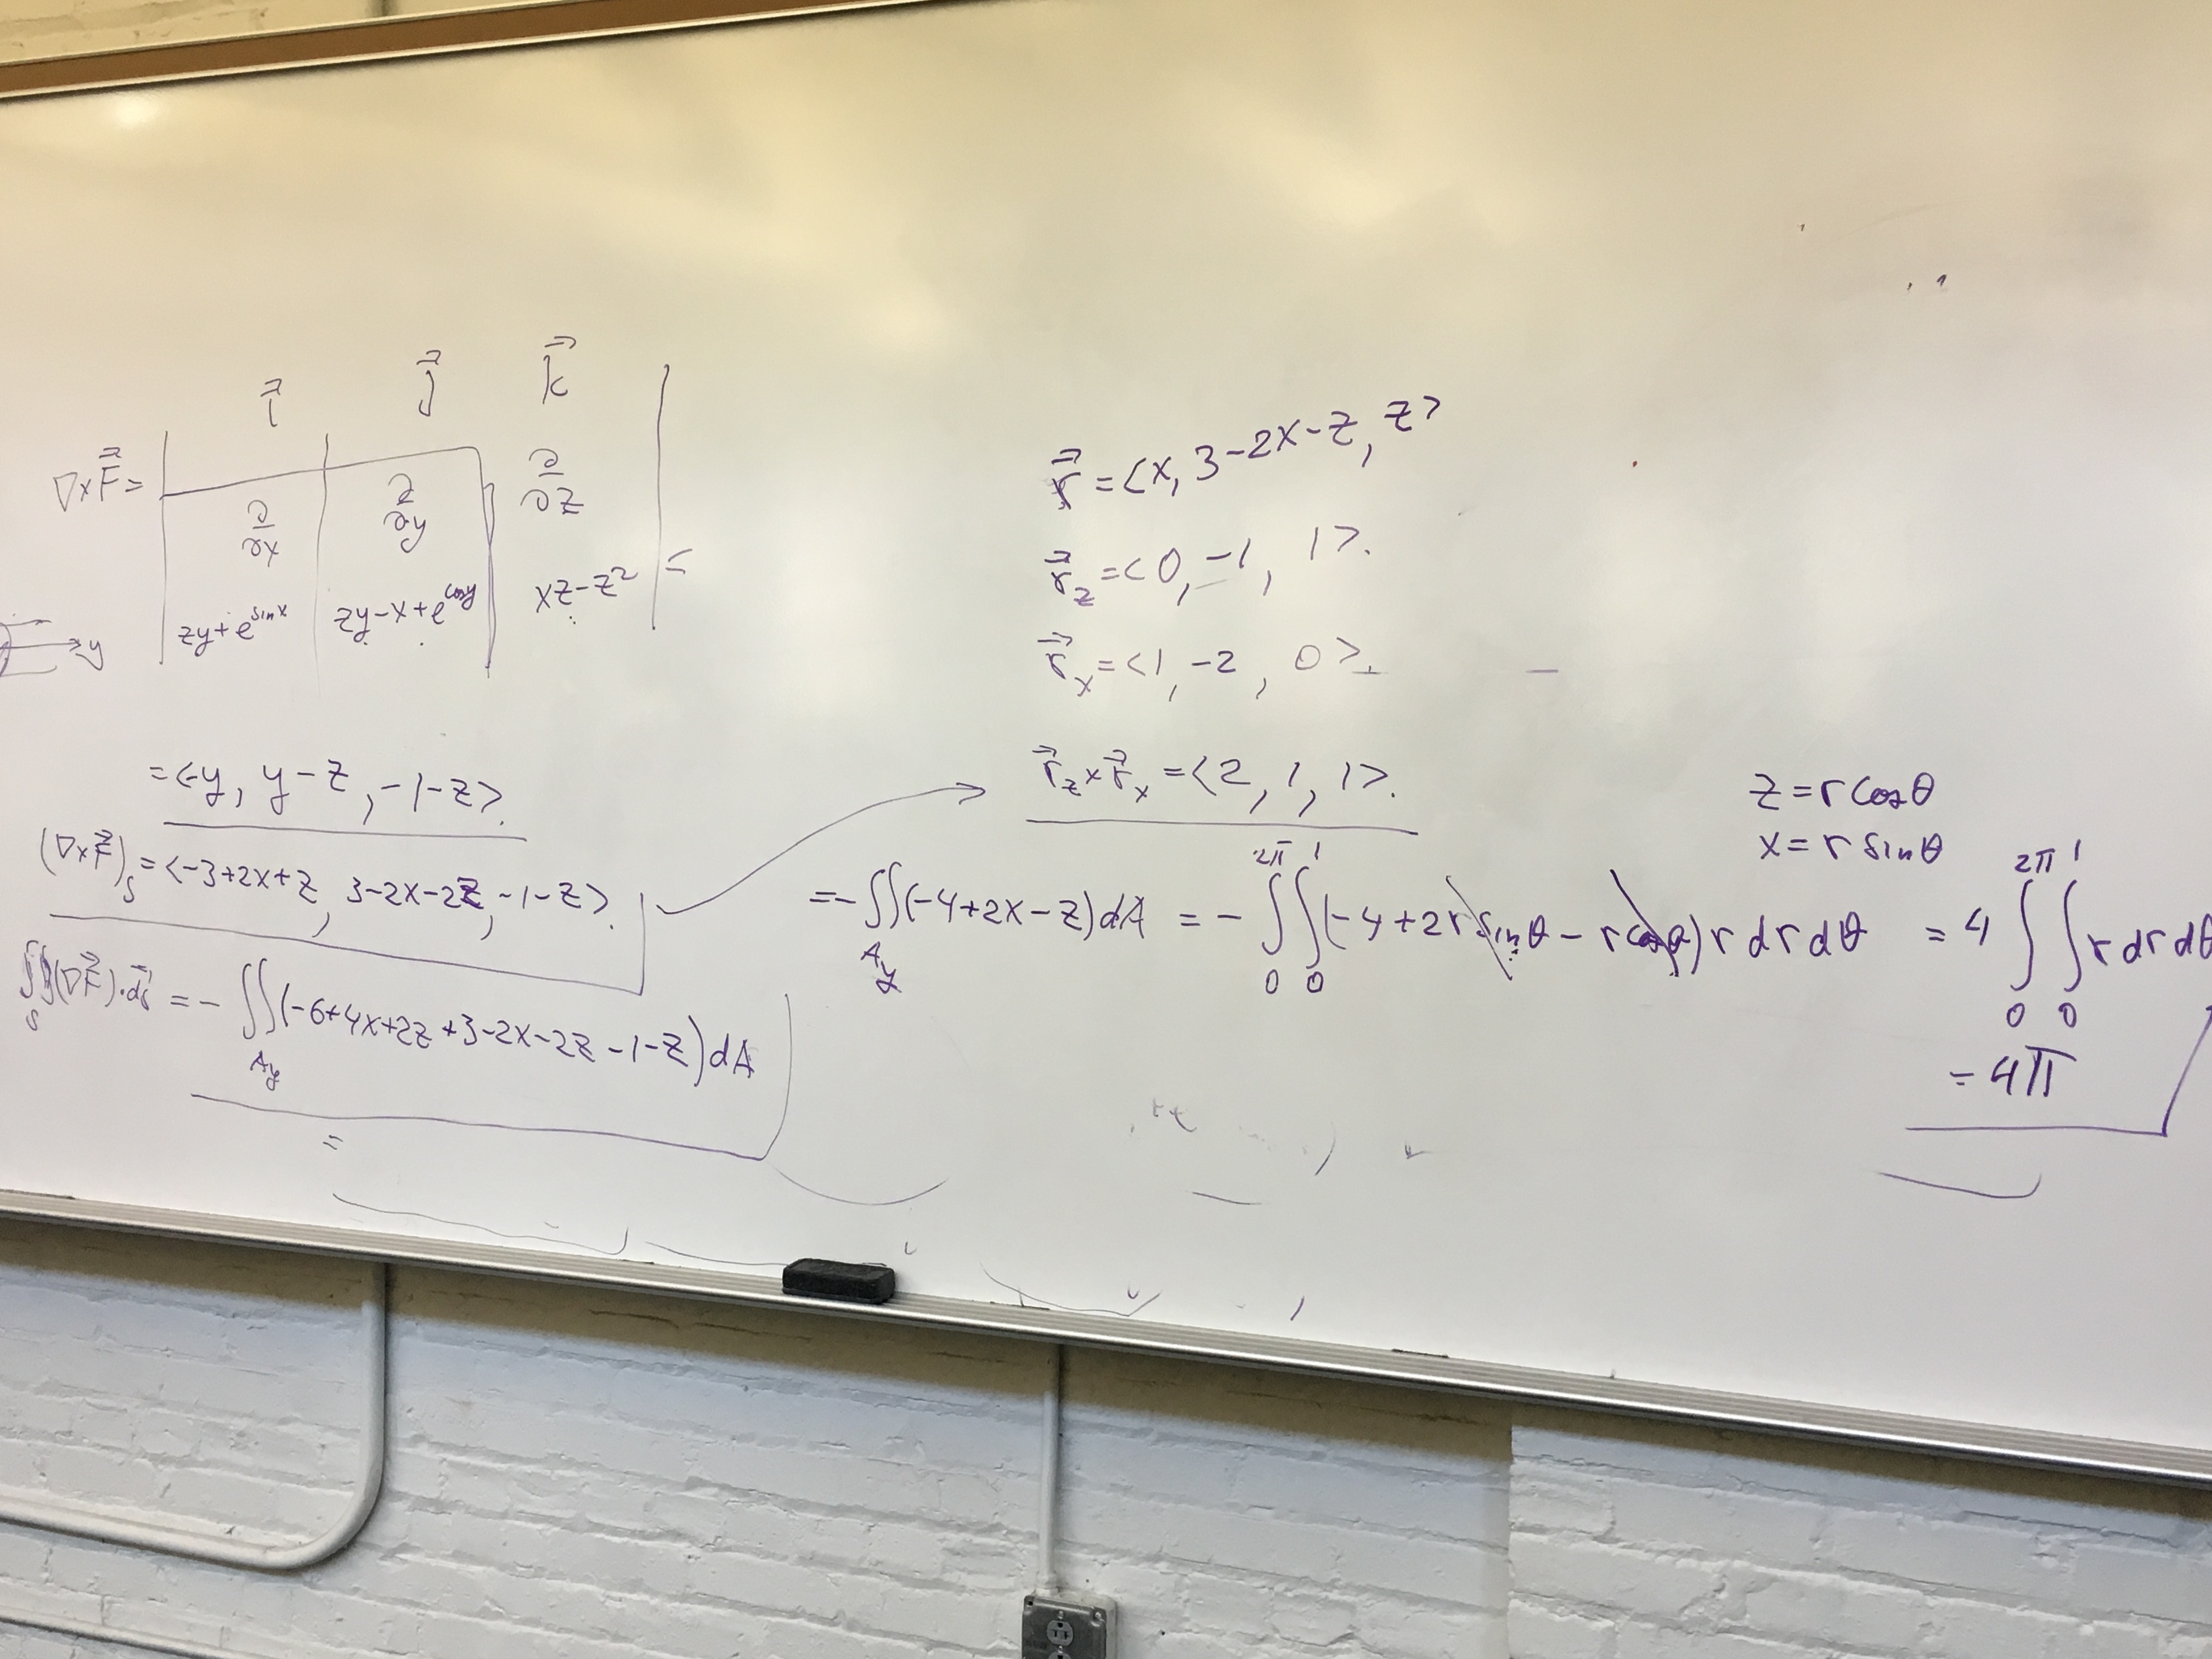 i⃗ j⃗ k⃗
∇×F⃗ = | ∂/∂x ∂/∂y ∂/∂z | =
zy+e^{sinx} zy-x+e^{cosy} xz-z²
y
=<-y, y-z, -1-z>.
(∇×F⃗)_S = <-3+2x+z, 3-2x-2z, -1-z>.
∬_S (∇×F⃗)·ds⃗ = - ∬_{A_y} (-6+4x+2z+3-2x-2z-1-z)dA
=
r⃗ = <x, 3-2x-z, z>
r⃗_z = <0, -1, 1>.
r⃗_x = <1, -2, 0>.
r⃗_z × r⃗_x = <2, 1, 1>.
z = r cosθ
x = r sinθ
= - ∬_{A_y} (-4+2x-z)dA = - ∫_0^{2π} ∫_0^1 (-4+2r sinθ - r cosθ) r dr dθ = 4 ∫_0^{2π} ∫_0^1 r dr dθ
= 4π